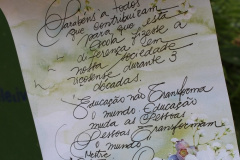 Parabéns a todos
que contribuíram
para que esta
Escola fizesse a
diferença em
nessa sociedade
durante 3
décadas.
"Educação não Transforma
o mundo. Educação
muda as Pessoas
Pessoas Transformam
o mundo
Mestre